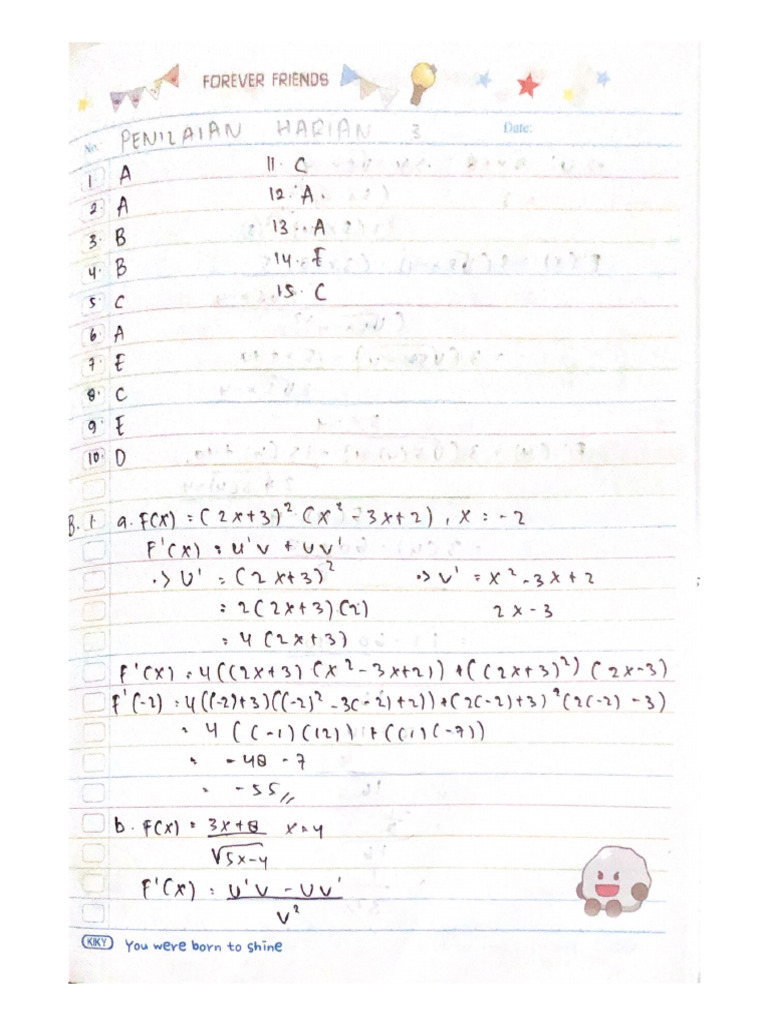 FOREVER FRIENDS
No. PENILAIAN HARIAN 3 Date:
1 A 11. C
2. A 12. A.
3. B 13. A
4. B 14. E
5. C 15. C
6. A
7. E
8. C
9. E
10. D
B. 1. a. F(x) = (2x+3)² (x² - 3x+2), x = -2
F'(x) = u'v + uv'
.> U' = (2x+3)² .> v' = x² - 3x + 2
= 2(2x+3)(2) 2x - 3
= 4(2x+3)
F'(x) = 4((2x+3) (x² - 3x+2)) + ((2x+3)²) (2x-3)
F'(-2) = 4((-2)+3)((-2)² - 3(-2)+2)) + (2(-2)+3)² (2(-2) - 3)
= 4 ((-1)(12)) + ((1)(-7))
= -48 - 7
= -55 //
b. F(x) = 3x+8 x = 4
√5x-4
F'(x) = U'V - UV'
V²
KIKY You were born to shine